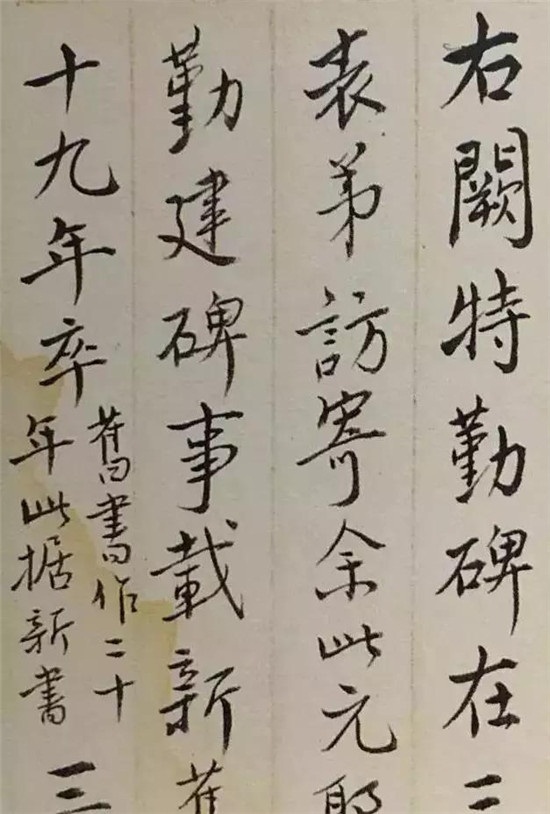 右闕特勤碑在二
表弟訪寄余此元
勤建碑事載新
十九年卒
舊書作二十
年此据新書
三